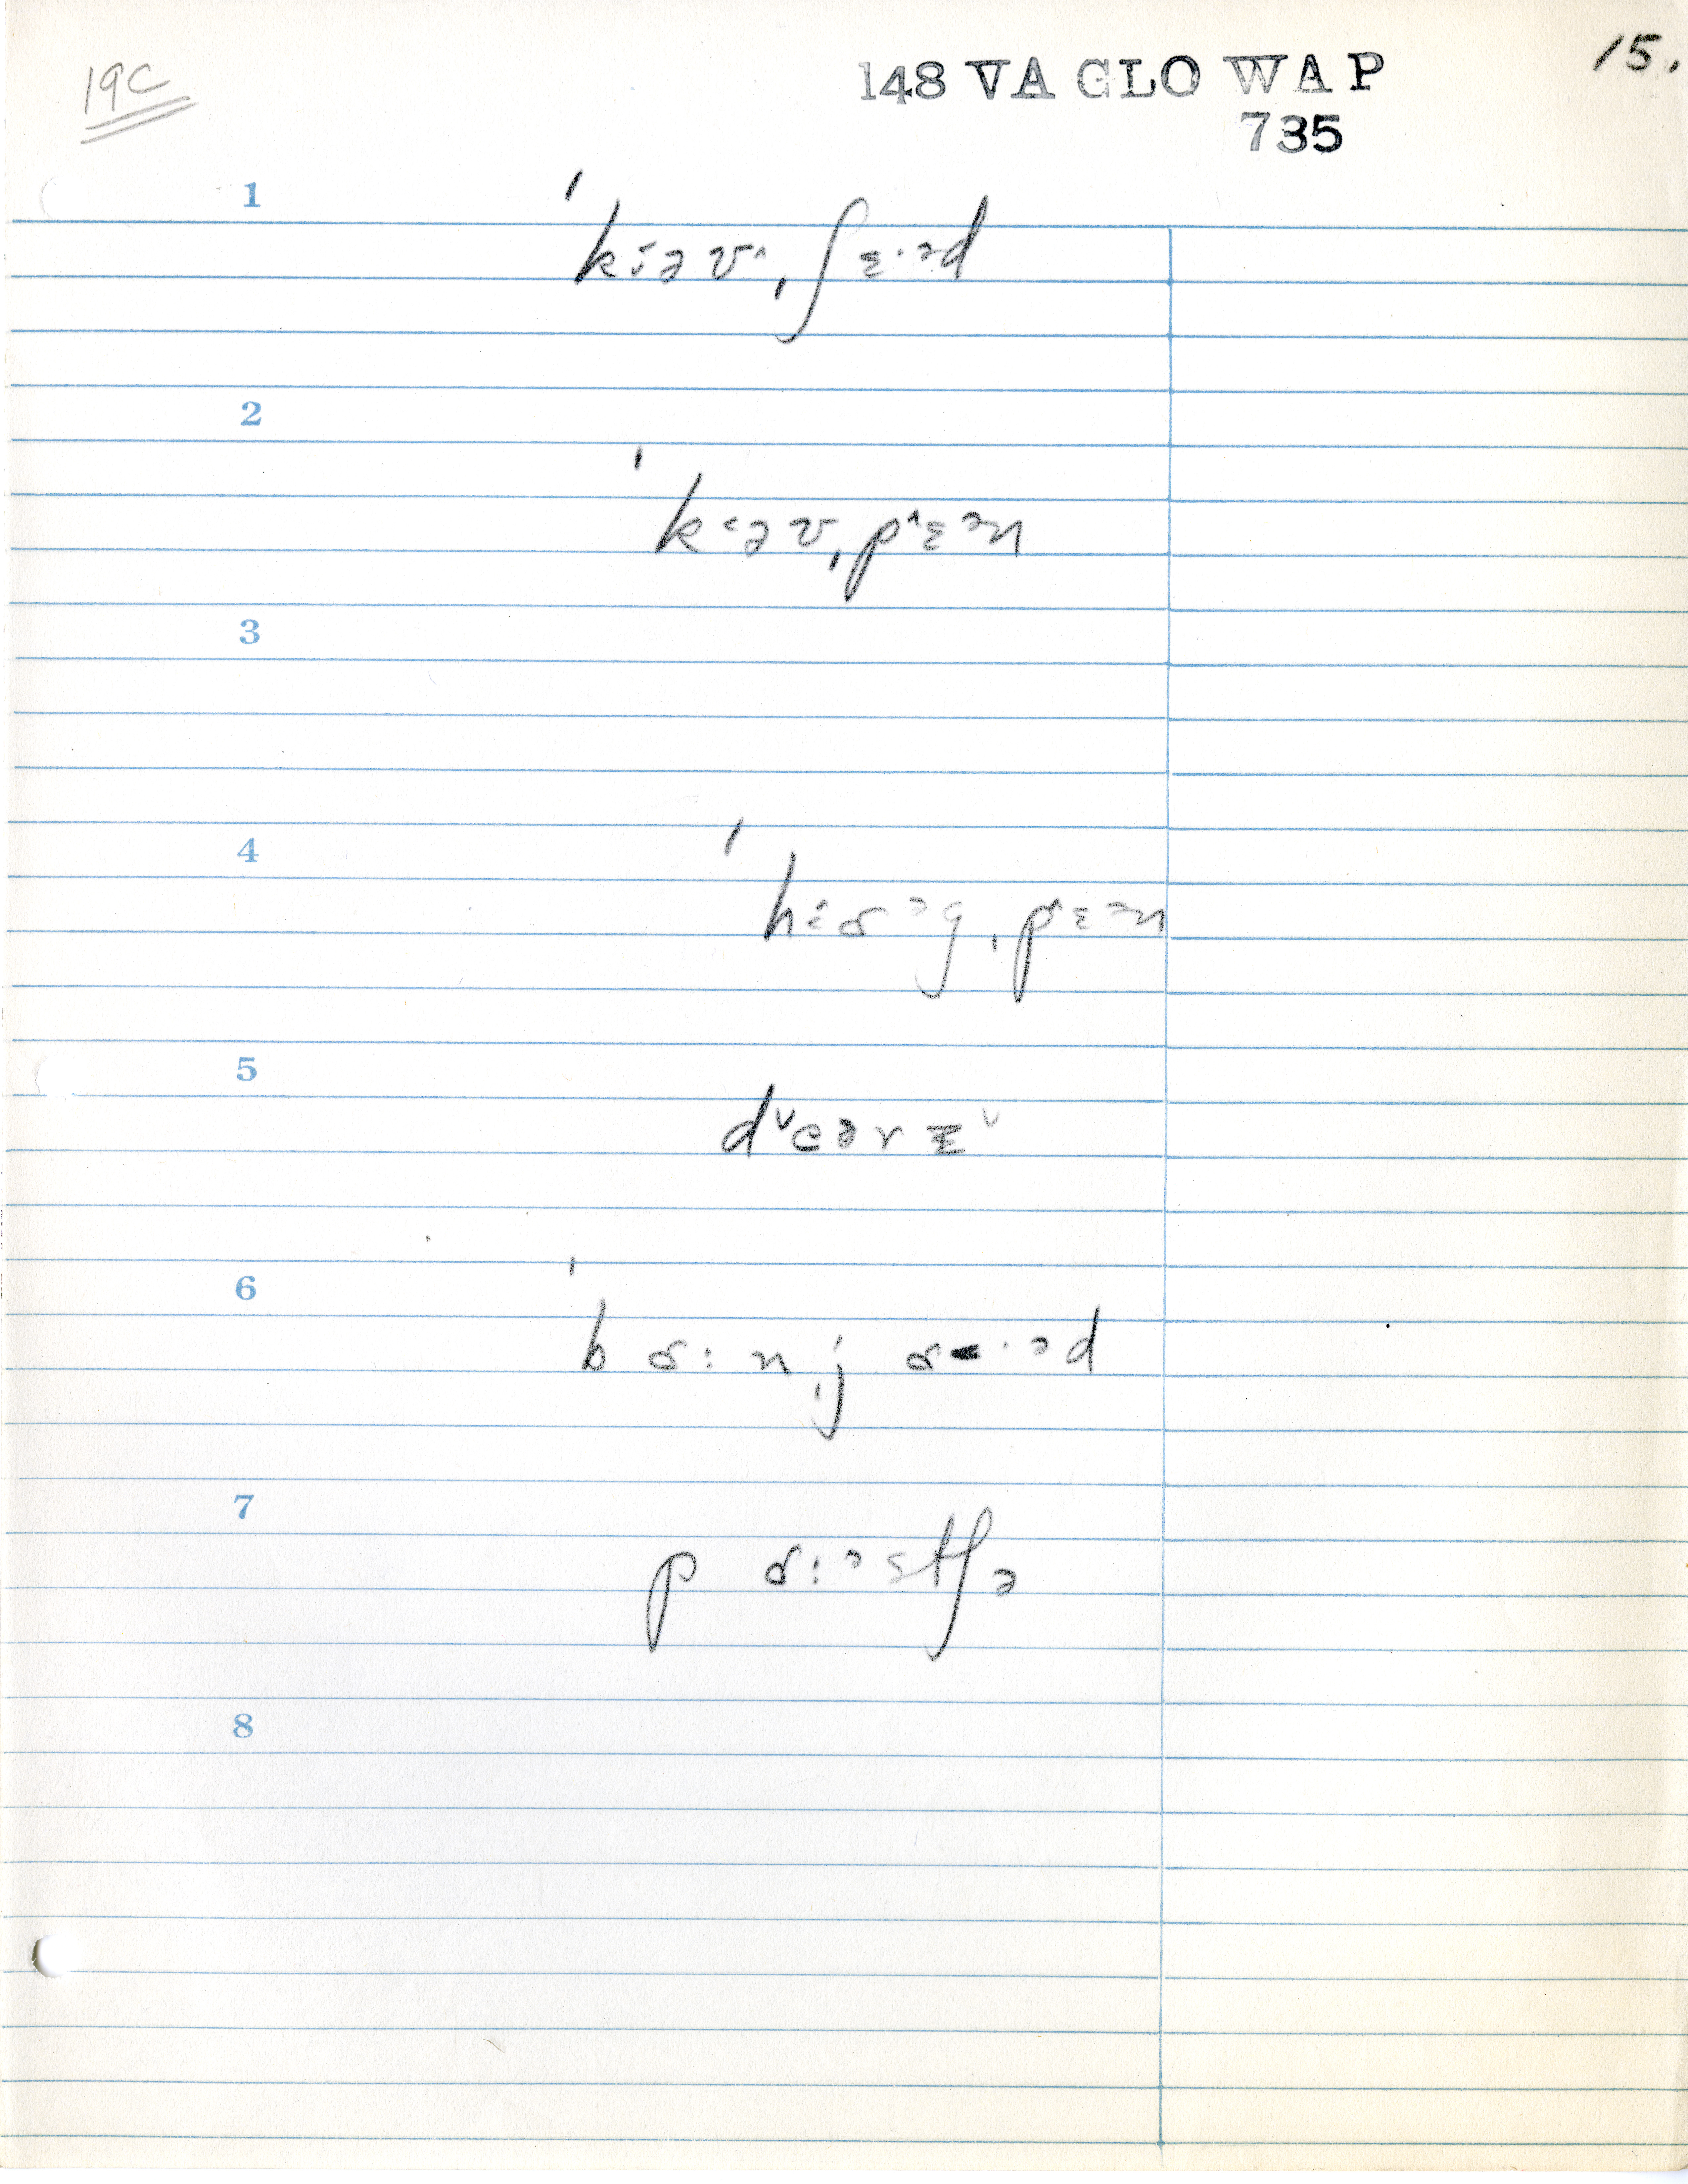 19C
148 VA GLO WAP
735
15.
1
ˈkɜəv^ˌʃɛ·əd
2
ˈk<əvˌp^ɛən
3
4
ˈhɜɑəgˌp^ɛən
5
d˅eərɪ˅
6
ˈbɑ:nˌjɑ·əd
7
pɑ:əstʃə
8